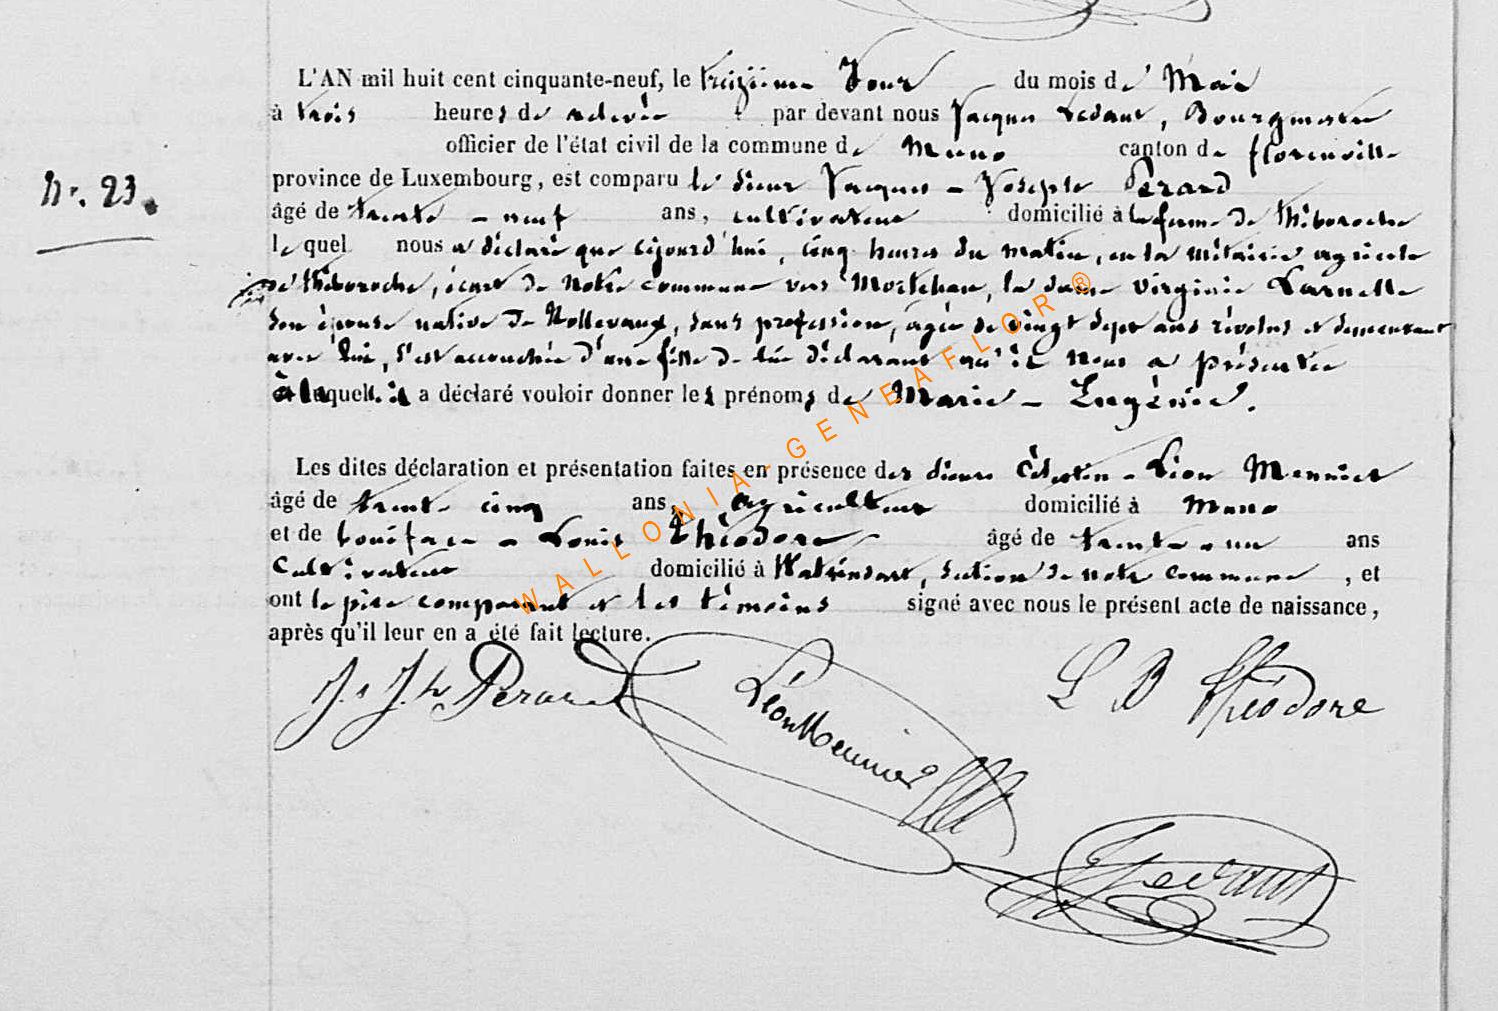 L'AN mil huit cent cinquante-neuf, le treizième Jour du mois de Mai
à trois heures de relevée par devant nous Jacques Ledant, Bourgmestre
officier de l'état civil de la commune de Muno canton de florenville
province de Luxembourg, est comparu le sieur Jacques - Joseph Perard
Nr. 23.
âgé de trente - neuf ans, cultivateur domicilié à la ferme de
lequel nous a déclaré que cejourd'hui, cinq heures du matin, en la métairie agricole
écart de Notre commune vers Mortehan, la dame Virginie Larnelle
son épouse native de Nollevaux, sans profession, âgée de vingt sept ans révolus et demeurant
avec lui, s'est accouchée d'une fille de lui déclarant qu'il nous a présentée
à laquelle il a déclaré vouloir donner les prénoms de Marie - Eugénie.
Les dites déclaration et présentation faites en présence des sieurs Célestin - Léon Meunier
âgé de trente cinq ans, agriculteur domicilié à Muno
et de boniface - Louis Théodore âgé de trente - un ans
Cultivateur domicilié à Watrinsart, section de notre commune, et
ont le père comparant et les témoins signé avec nous le présent acte de naissance,
après qu'il leur en a été fait lecture.
J. Jh Perard Léon Meunier L B Théodore
JLedant
WALLONIA-GENEAFLOR®